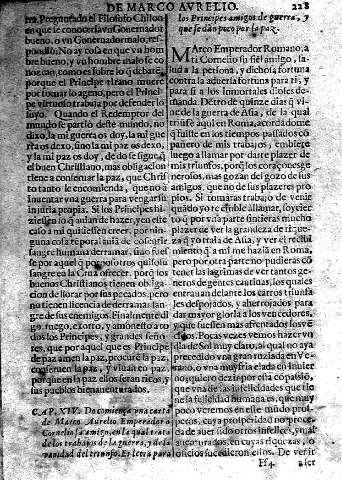 DE MARCO AVRELIO. 228
tra. Preguntado el Filosofo Chilon
en que se conoceria vn Gouernador
bueno, o vn Gouernador malo, res-
pondio: No ay cosa en que vn hom
bre bueno, y vn hombre malo se co
nozcan, como es sobre lo q̃ debatẽ,
porque el Principe tirano, muere
por tomar lo ageno, pero el Princi-
pe virtuoso trabaja por defender lo
suyo. Quando el Redemptor del
mundo se partio deste mundo, no
dixo, la mi guerra os doy, la mi gue
rra os dexo, sino la mi paz os dexo,
y la mi paz os doy, de do se sigue, q̃
el buen Christiano, mas obligacion
tiene a conseruar la paz, que Chris
to tanto le encomienda, que no a
inuentar vna guerra para vengar su
injuria propia. Si los Principes hi-
ziessen lo q̃ auian de hazer, y en este
caso a mi quisiessen creer, por nin-
guna cosa temporal auia de consentir
sangre humana derramar, sino fues
se por aquel que por nosotros su
sangre en la Cruz ofrecio, porq̃ los
buenos Christianos tienen obliga-
cion de llorar por sus pecados, pero
no tienen licencia de derramar san-
gre de sus enemigos. Finalmente di
go, ruego, exorto, y amonesto a to
dos los Principes, y grandes seño-
res, que por aquel que es Principe
de paz amen la paz, procuren la paz,
conseruen la paz, y viuan en paz,
porque en la paz ellos seran ricos, y
sus pueblos bienauenturados.
CAP. XIV. Do comiença vna carta
de Marco Aurelio Emperador a
Cornelio su amigo, en la qual trata
de los trabajos de la guerra, y de la
vanidad del triunfo. Es letra para
los Principes amigos de guerra, y
que se dan poco por la paz.
MArco Emperador Romano, a
ti Cornelio su fiel amigo, sa-
lud a la persona, y dichosa fortuna
contra la aduersa fortuna para ti, y
para si a los inmortales dioses de-
manda. Dentro de quinze dias q̃ vi-
ne de la guerra de Asia, de la qual
triunfe aqui en Roma, acordandome
q̃ fuiste en los tiempos passados cõ
pañero de mis trabajos, embiete
luego a llamar por darte plazer de
mis triunfos, porq̃ los coraçones ge
nerosos, mas gozan del gozo de sus
amigos, que no de sus plazeres pro
pios. Si tomaras trabajo de venir
quãdo yo te embie a llamar, soy cier
to q̃ por vna parte sintieras mucho
plazer de ver la grandeza de rique-
za q̃ yo traia de Asia, y ver el recibi
miento q̃ a mi me hazia en Roma,
pero por otra parte no pudieras cõ
tener las lagrimas de ver tantos ge-
neros de gentes cautiuas, las quales
entrauan delante los carros triunfa
les despojados, y aherrojados para
dar mayor gloria a los vencedores,
y que fuessen mas afrentados los vẽ
cidos. Pocas vezes vemos hazer vn
dia de Sol muy claro, al qual no aya
precedido vna gran ruziada en Ve-
rano, o vna muy fria elada en Inuier
no, quiero dezir por esta cõpassiõ,
que vna de las infelicidades que tie
ne la felicidad humana es, que muy
poco veremos en este mũdo prós-
peros, cuya prosperidad no proce-
da de auer sido otros infelices, y mal
auenturados, en cuyas riquezas, o
oficios sucedieron ellos. De verir
Ff4 a ser